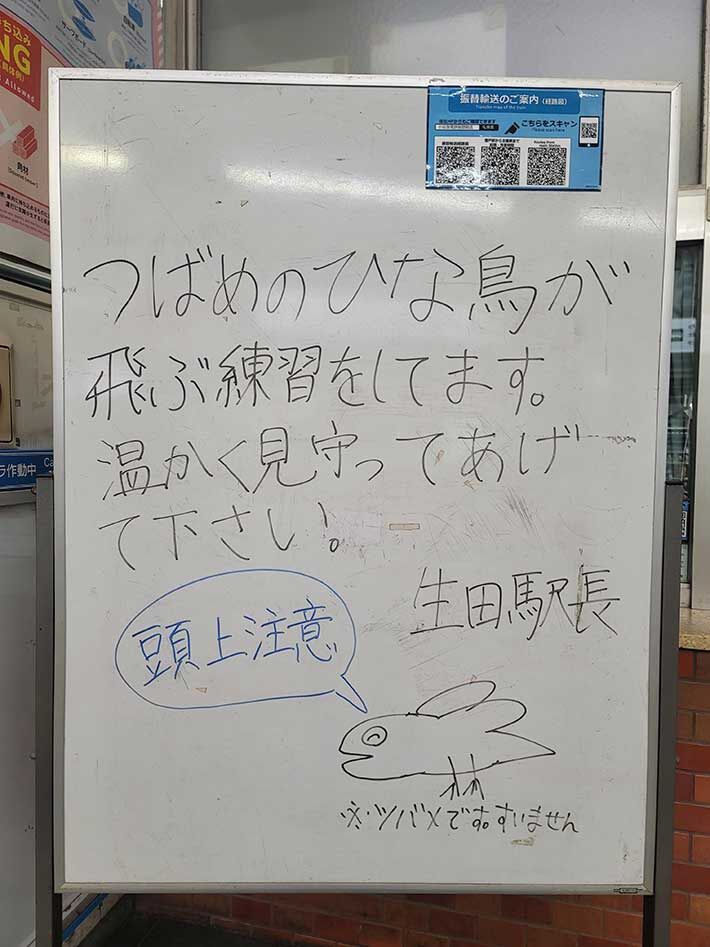 ち込み
NG
Allowed
サーフボード
振替輸送のご案内（経路図）
Transfer map of the train
こちらをスキャン
つばめのひな鳥が
飛ぶ練習をしてます。
温かく見守ってあげ
て下さい。
生田駅長
頭上注意
※ツバメです。すいません
ラ作動中 Ca